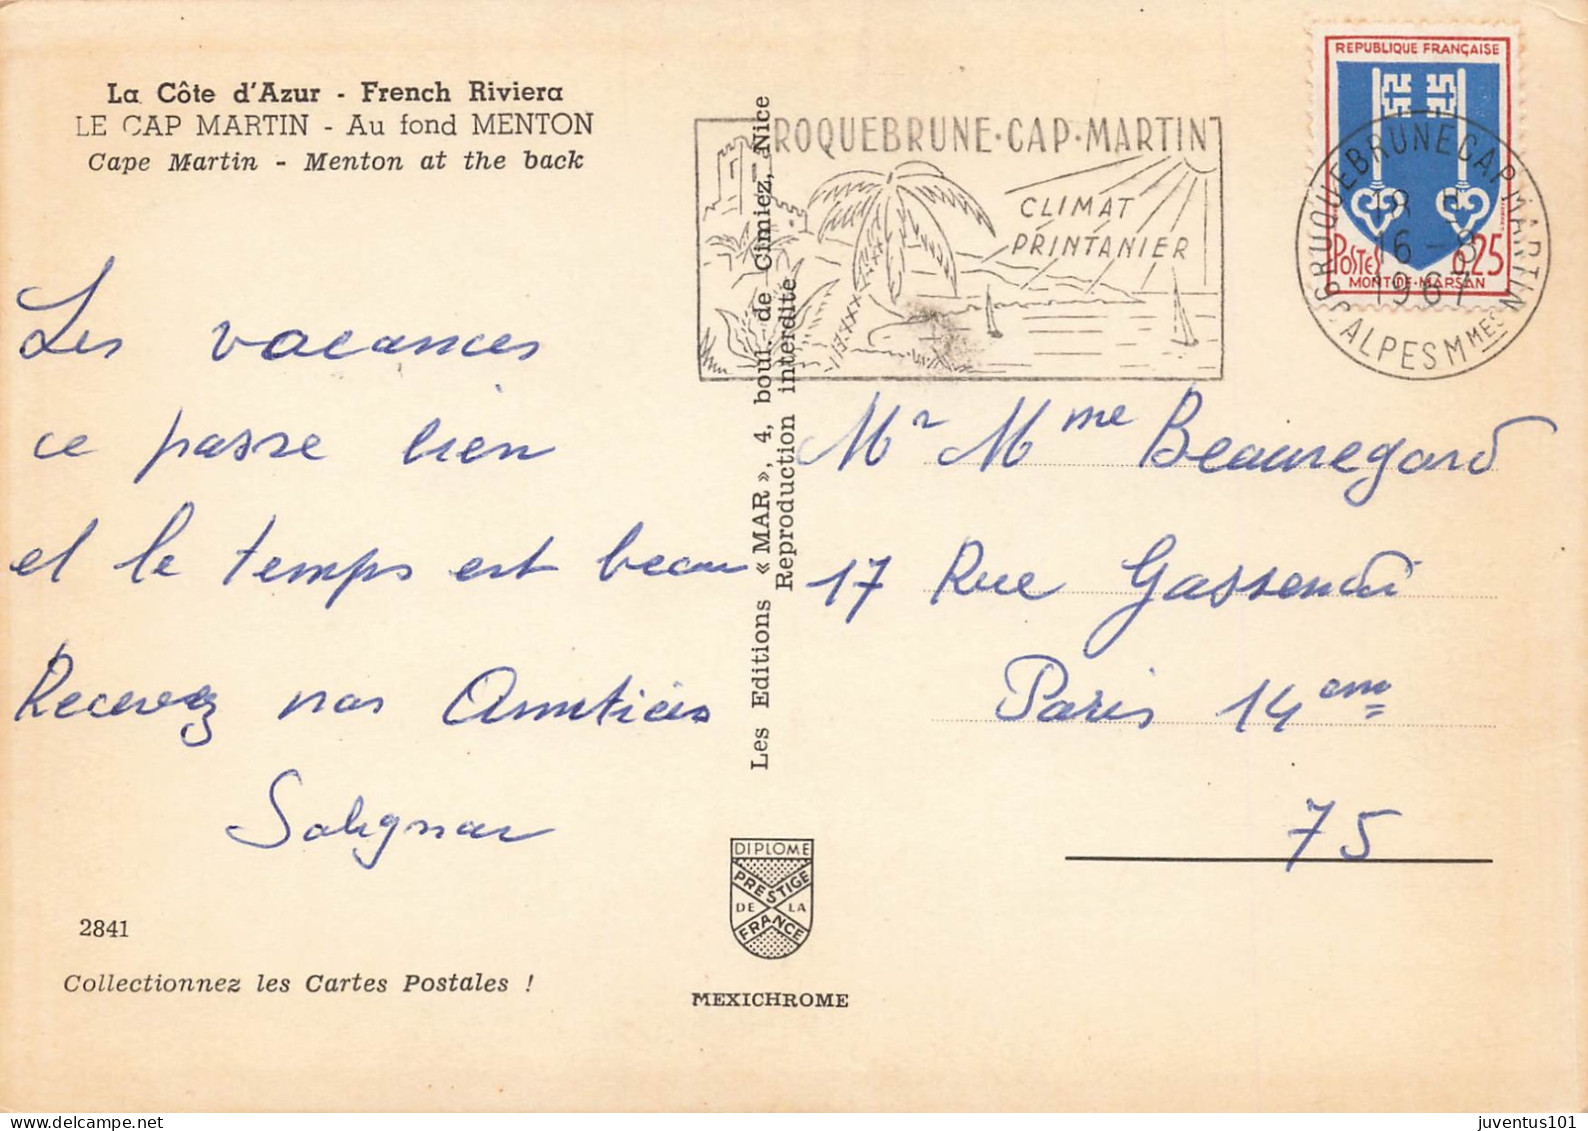 La Côte d'Azur - French Riviera
LE CAP MARTIN - Au fond MENTON
Cape Martin - Menton at the back
Les vacances
ce passe bien
et le temps est beau
Recevez nos Amitiés
2841
Collectionnez les Cartes Postales !
Les Editions « MAR », 4, boul. de Cimiez, Nice
Reproduction interdite
DIPLOME
PRESTIGE
DE LA
FRANCE
MEXICHROME
ROQUEBRUNE·CAP·MARTIN
CLIMAT
PRINTANIER
REPUBLIQUE FRANÇAISE
POSTES 0,25
MONT-DE-MARSAN
ROQUEBRUNE CAP MARTIN
16-8
1967
ALPES MMES
Mr Mme Beauregard
17 Rue Gassendi
Paris 14em
75
juventus101